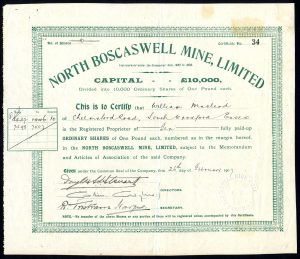 No. of Shares
Certificate No. 34
NORTH BOSCASWELL MINE, LIMITED
CAPITAL - - £10,000,
Divided into 10,000 Ordinary Shares of One Pound each.
This is to Certify that William Macleod
of Chelmsford Road, South Woodford Essex
is the Registered Proprietor of Ten fully paid-up
ORDINARY SHARES of One Pound each, numbered as in the margin hereof,
in the NORTH BOSCASWELL MINE, LIMITED, subject to the Memorandum
and Articles of Association of the said Company.
GIVEN under the Common Seal of the Company, this day of February 1907
DIRECTORS.
SECRETARY.
NOTE.—No transfer of the above Shares or any portion of them will be registered unless accompanied by this Certificate.